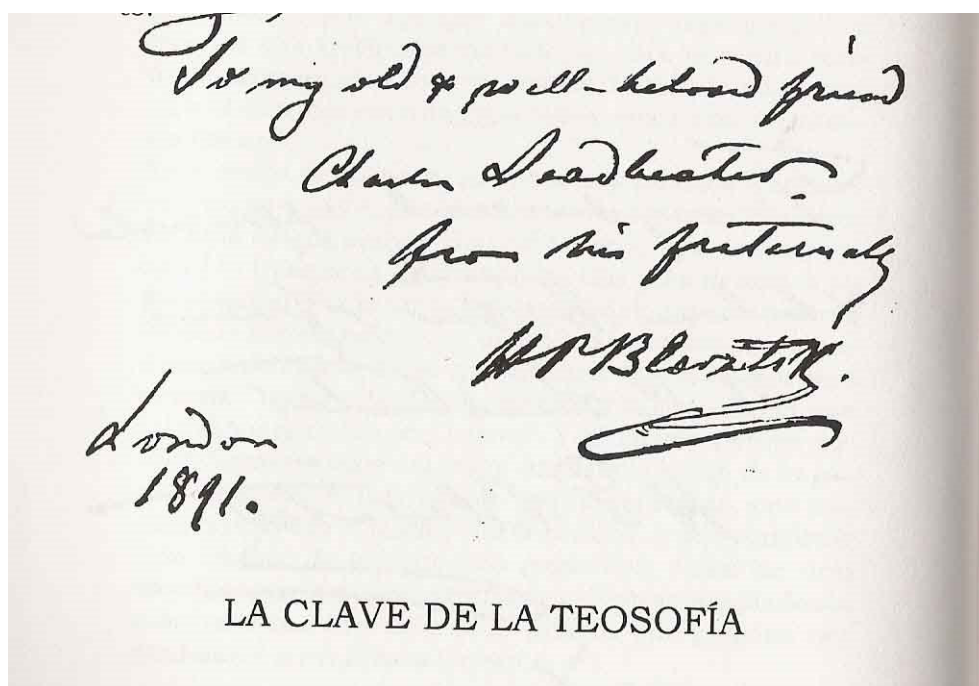 To my old & well-beloved friend
Charles Leadbeater.
from his fraternaly
HPBlavatsky.
London
1891.
LA CLAVE DE LA TEOSOFÍA